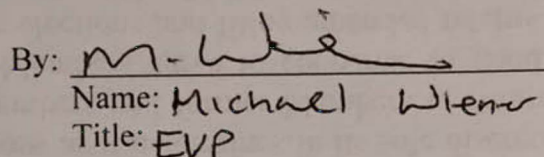 By: M. Wie
Name: Michael Wiener
Title: EVP